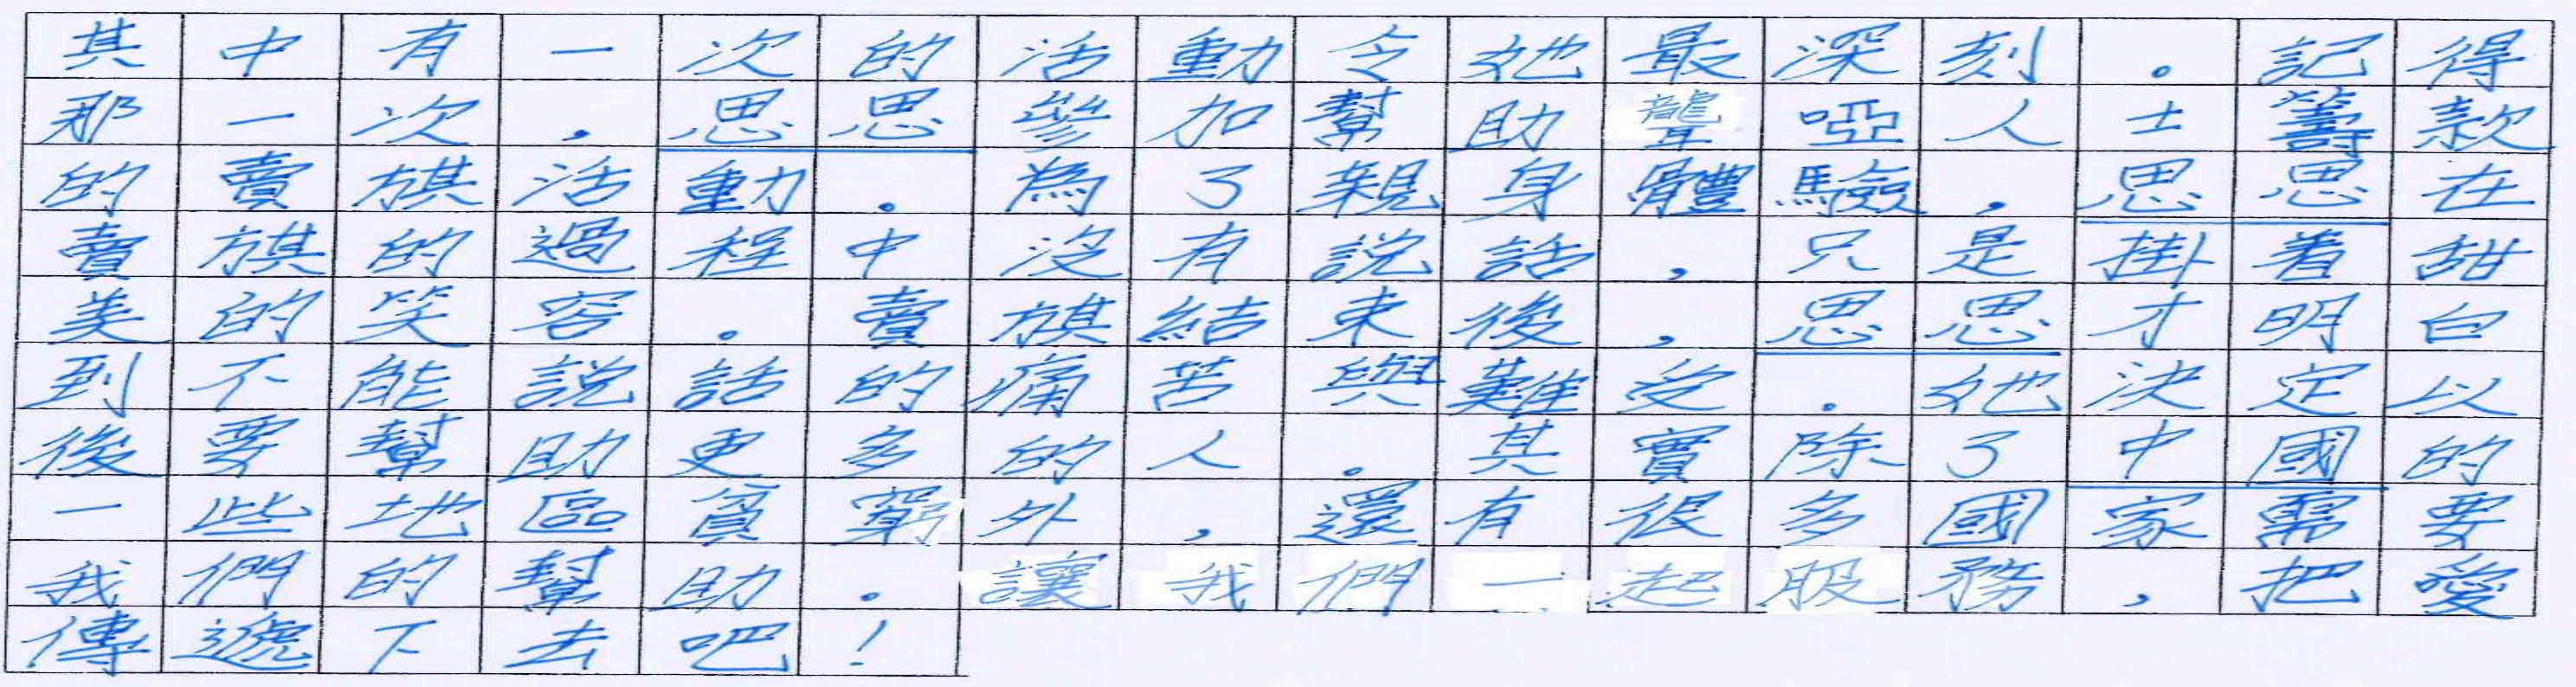 其中有一次的活動令她最深刻。記得
那一次，思思參加幫助聾啞人士籌款
的賣旗活動。為了親身體驗，思思在
賣旗的過程中沒有說話，只是掛着甜
美的笑容。賣旗結束後，思思才明白
到不能說話的痛苦與難受。她決定以
後要幫助更多的人。其實除了中國的
一些地區貧窮外，還有很多國家需要
我們的幫助。讓我們一起服務，把愛
傳遞下去吧！